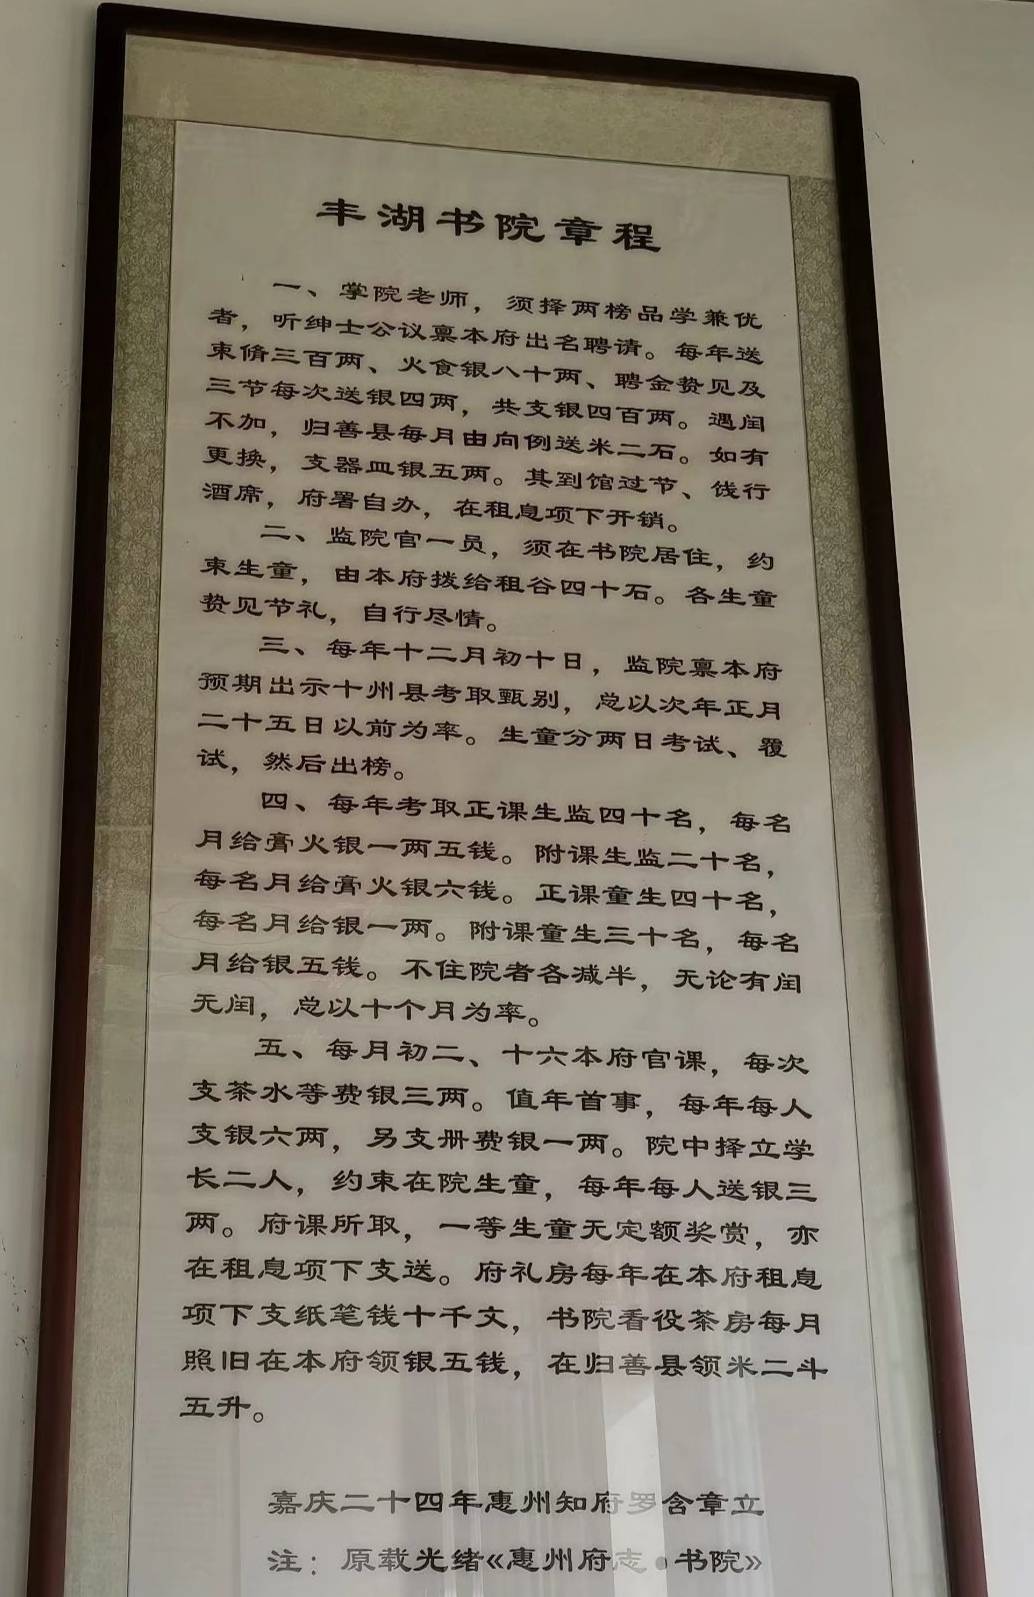 丰湖书院章程
一、掌院老师，须择两榜品学兼优
者，听绅士公议禀本府出名聘请。每年送
束脩三百两、火食银八十两、聘金贽见及
三节每次送银四两，共支银四百两。遇闰
不加，归善县每月由向例送米二石。如有
更换，支器皿银五两。其到馆过节、饯行
酒席，府署自办，在租息项下开销。
二、监院官一员，须在书院居住，约
束生童，由本府拨给租谷四十石。各生童
贽见节礼，自行尽情。
三、每年十二月初十日，监院禀本府
预期出示十州县考取甄别，总以次年正月
二十五日以前为率。生童分两日考试、覆
试，然后出榜。
四、每年考取正课生监四十名，每名
月给膏火银一两五钱。附课生监二十名，
每名月给膏火银六钱。正课童生四十名，
每名月给银一两。附课童生三十名，每名
月给银五钱。不住院者各减半，无论有闰
无闰，总以十个月为率。
五、每月初二、十六本府官课，每次
支茶水等费银三两。值年首事，每年每人
支银六两，另支册费银一两。院中择立学
长二人，约束在院生童，每年每人送银三
两。府课所取，一等生童无定额奖赏，亦
在租息项下支送。府礼房每年在本府租息
项下支纸笔钱十千文，书院看役茶房每月
照旧在本府领银五钱，在归善县领米二斗
五升。
嘉庆二十四年惠州知府罗含章立
注：原载光绪《惠州府志·书院》